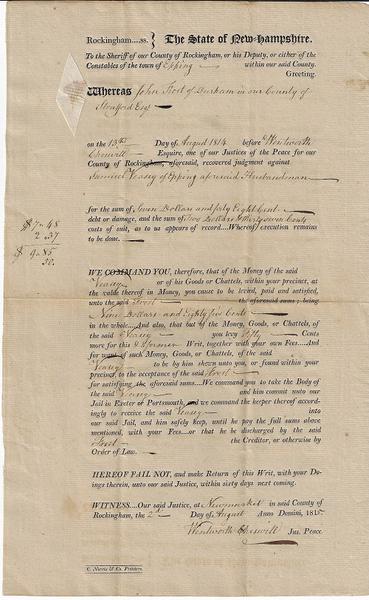 Rockingham....ss. } The State of New-Hampshire.
To the Sheriff of our County of Rockingham, or his Deputy, or either of the
Constables of the town of Epping within our said County.
Greeting.
Whereas John Frost of Durham in our County of
Strafford Esqr
on the 13th Day of August 1814 before Wentworth
Cheswill Esquire, one of our Justices of the Peace for our
County of Rockingham, aforesaid, recovered judgment against
Samuel Veasey of Epping aforesaid Husbandman
for the sum of Seven Dollars and forty Eight Cents
debt or damage, and the sum of Two Dollars & thirty seven Cents
costs of suit, as to us appears of record....Whereof execution remains
to be done.
$ 7..48
2..37
$ 9..85
50.
WE COMMAND YOU, therefore, that of the Money of the said
Veasey or of his Goods or Chattels, within your precinct, at
the value thereof in Money, you cause to be levied, paid and satisfied,
unto the said Frost the aforesaid sums; being
Nine Dollars and Eighty five Cents
in the whole....And also, that out of the Money, Goods, or Chattels,
of the said Veasey you levy Fifty Cents
more for this & former Writ, together with your own Fees....And
for want of such Money, Goods, or Chattels, of the said
Veasey to be by him shewn unto you, or found within your
precinct, to the acceptance of the said Frost
for satisfying the aforesaid sums...We command you to take the Body of
the said Veasey and him commit unto our
Jail in Exeter or Portsmouth, and we command the keeper thereof accord-
ingly to receive the said Veasey into
our said Jail, and him safely keep, until he pay the full sums above
mentioned, with your Fees....or that he be discharged by the said
Frost the Creditor, or otherwise by
Order of Law.
HEREOF FAIL NOT, and make Return of this Writ, with your Do-
ings therein, unto our said Justice, within sixty days next coming.
WITNESS....Our said Justice, at Newmarket in said County of
Rockingham, the 2d Day of August Anno Domini, 1815
Wentworth Cheswill Jus. Peace.
C. Norris & Co. Printers.